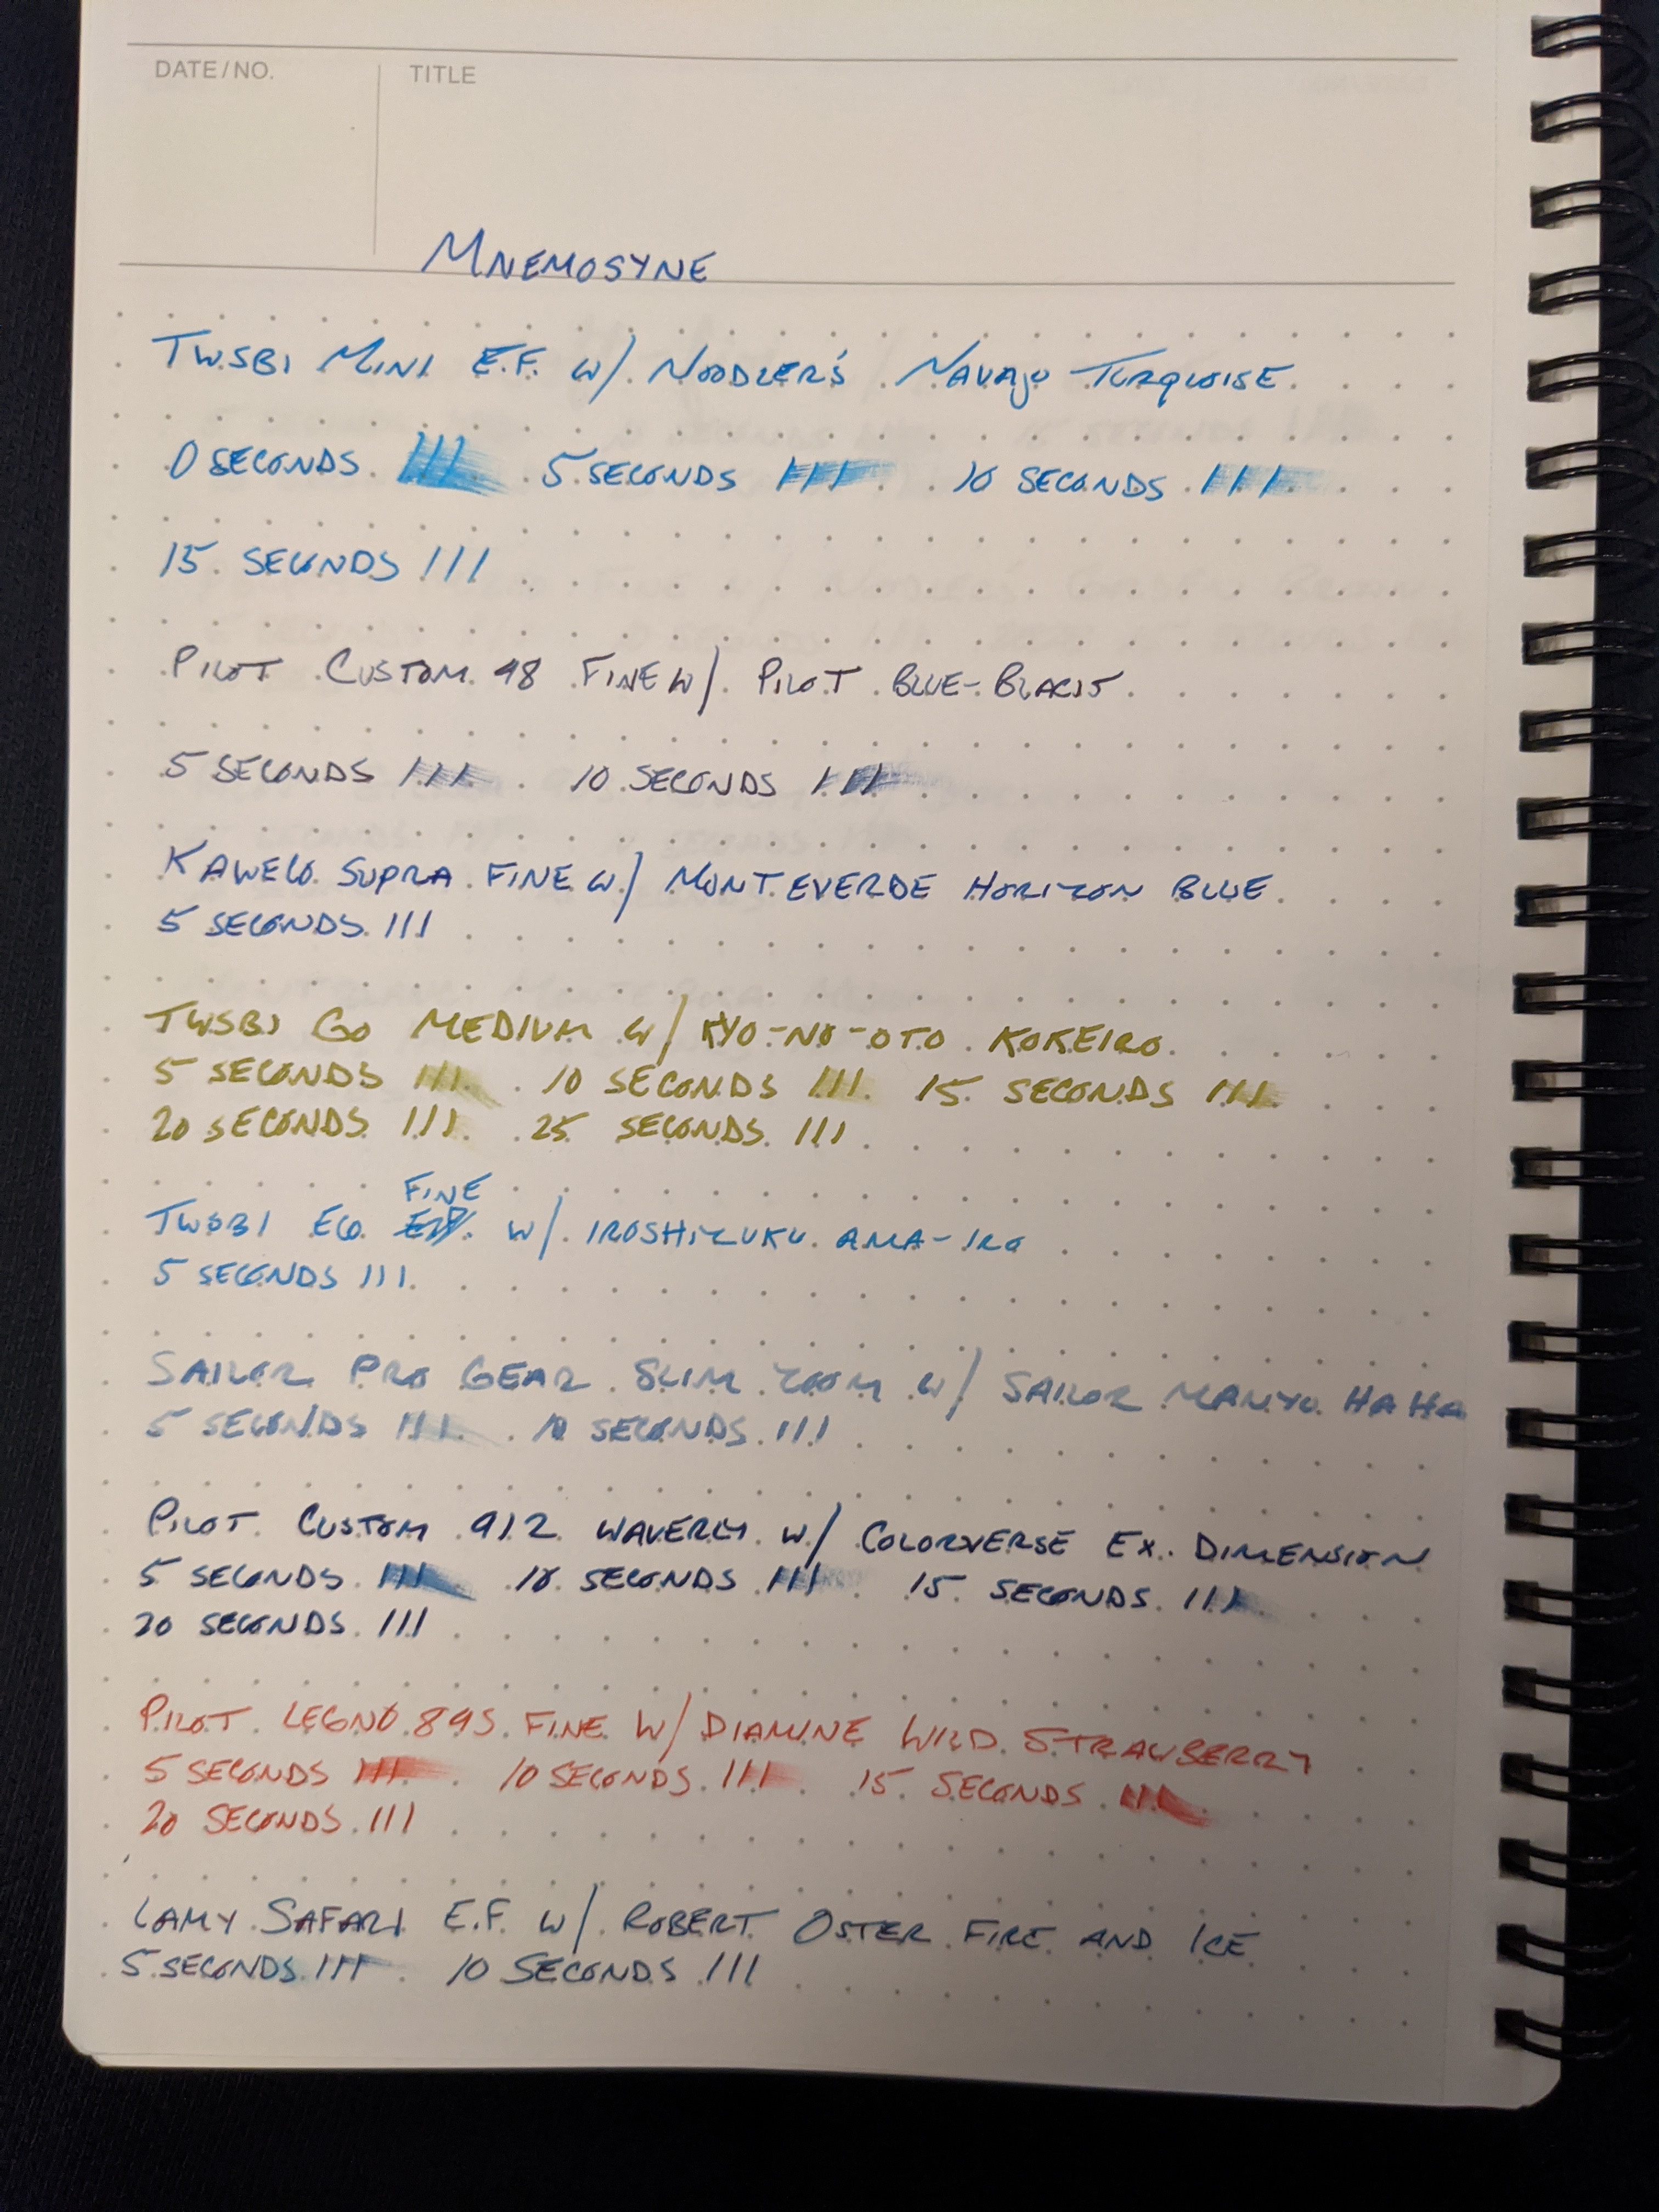 DATE/NO. TITLE
MNEMOSYNE
TWSBI MINI E.F. W/ NOODLER'S NAVAJO TURQUOISE
0 SECONDS III 5 SECONDS III 10 SECONDS III
15 SECONDS III
PILOT CUSTOM 98 FINE W/ PILOT BLUE-BLACK
5 SECONDS III 10 SECONDS III
KAWECO SUPRA FINE W/ MONTEVERDE HORIZON BLUE
5 SECONDS III
TWSBI GO MEDIUM W/ KYO-NO-OTO KOKEIRO
5 SECONDS III 10 SECONDS III 15 SECONDS III
20 SECONDS III 25 SECONDS III
FINE
TWSBI ECO W/ IROSHIZUKU AMA-IRO
5 SECONDS III
SAILOR PRO GEAR SLIM ZOOM W/ SAILOR MANYO HAHA
5 SECONDS III 10 SECONDS III
PILOT CUSTOM 912 WAVERLY W/ COLORVERSE EX. DIMENSION
5 SECONDS III 10 SECONDS III 15 SECONDS III
20 SECONDS III
PILOT LEGNO 89S FINE W/ DIAMINE WILD STRAWBERRY
5 SECONDS III 10 SECONDS III 15 SECONDS III
20 SECONDS III
LAMY SAFARI E.F. W/ ROBERT OSTER FIRE AND ICE
5 SECONDS III 10 SECONDS III